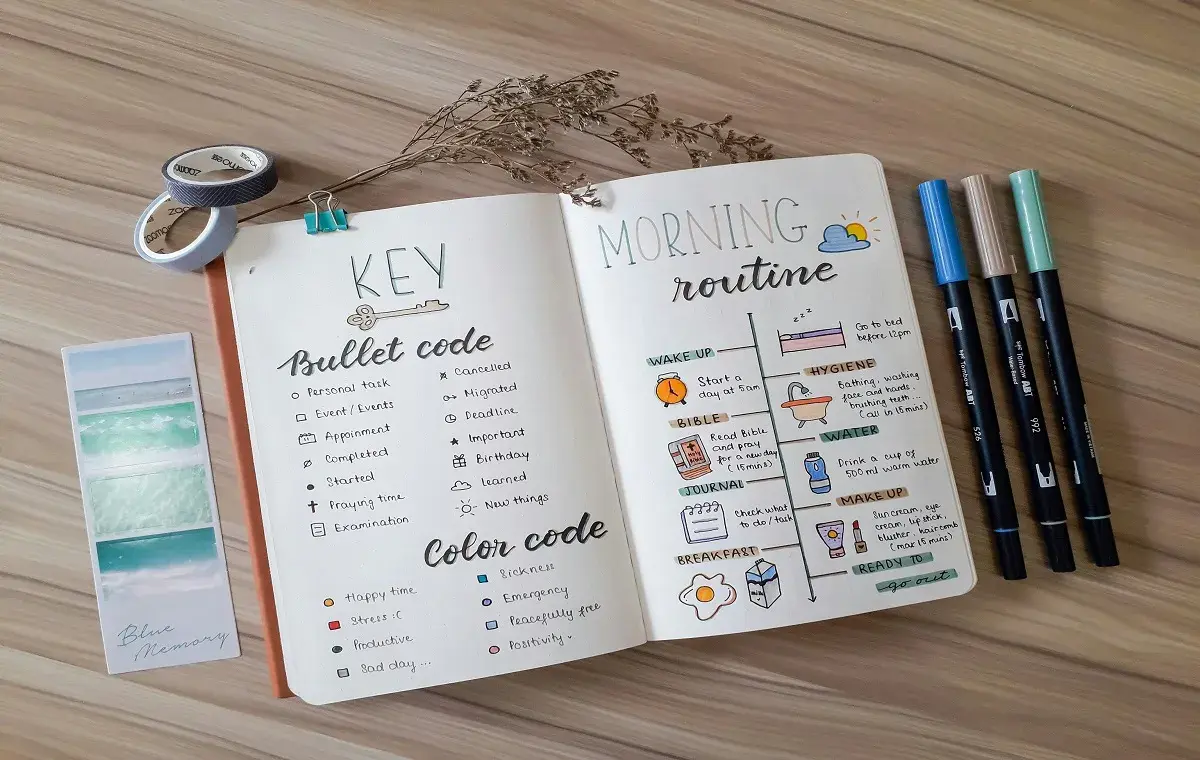 KEY
Bullet code
Personal task
Event / Events
Appoinment
Completed
Started
Praying time
Examination
Cancelled
Migrated
Deadline
Important
Birthday
Learned
New things
Color code
Happy time
Stress :(
Productive
Sad day ...
Sickness
Emergency
Peacefully free
Positivity
MORNING
routine
zzz
Go to bed
before 12pm
WAKE UP
Start a
day at 5am
HYGIENE
Bathing, washing
face and hands,
brushing teeth...
(all in 15 mins)
BIBLE
Read Bible
and pray
for a new day
(15 mins)
WATER
Drink a cup of
500 ml warm water
JOURNAL
Check what
to do / task
MAKE UP
Sun cream, eye
cream, lipstick,
blusher, hair comb
(max 15 mins)
BREAKFAST
READY TO
go out
Blue
Memory
Tombow ABT
526
Tombow ABT
992